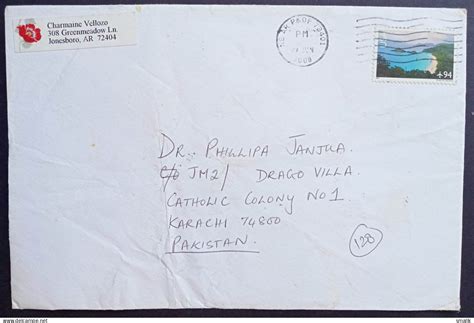 Charmaine Vellozo
308 Greenmeadow Ln.
Jonesboro, AR 72404
PM
2008
+94
DR. PHILLIPA JANJUA.
C/O JM2/ DRAGO VILLA.
CATHOLIC COLONY NO 1
KARACHI 74800
PAKISTAN.
128